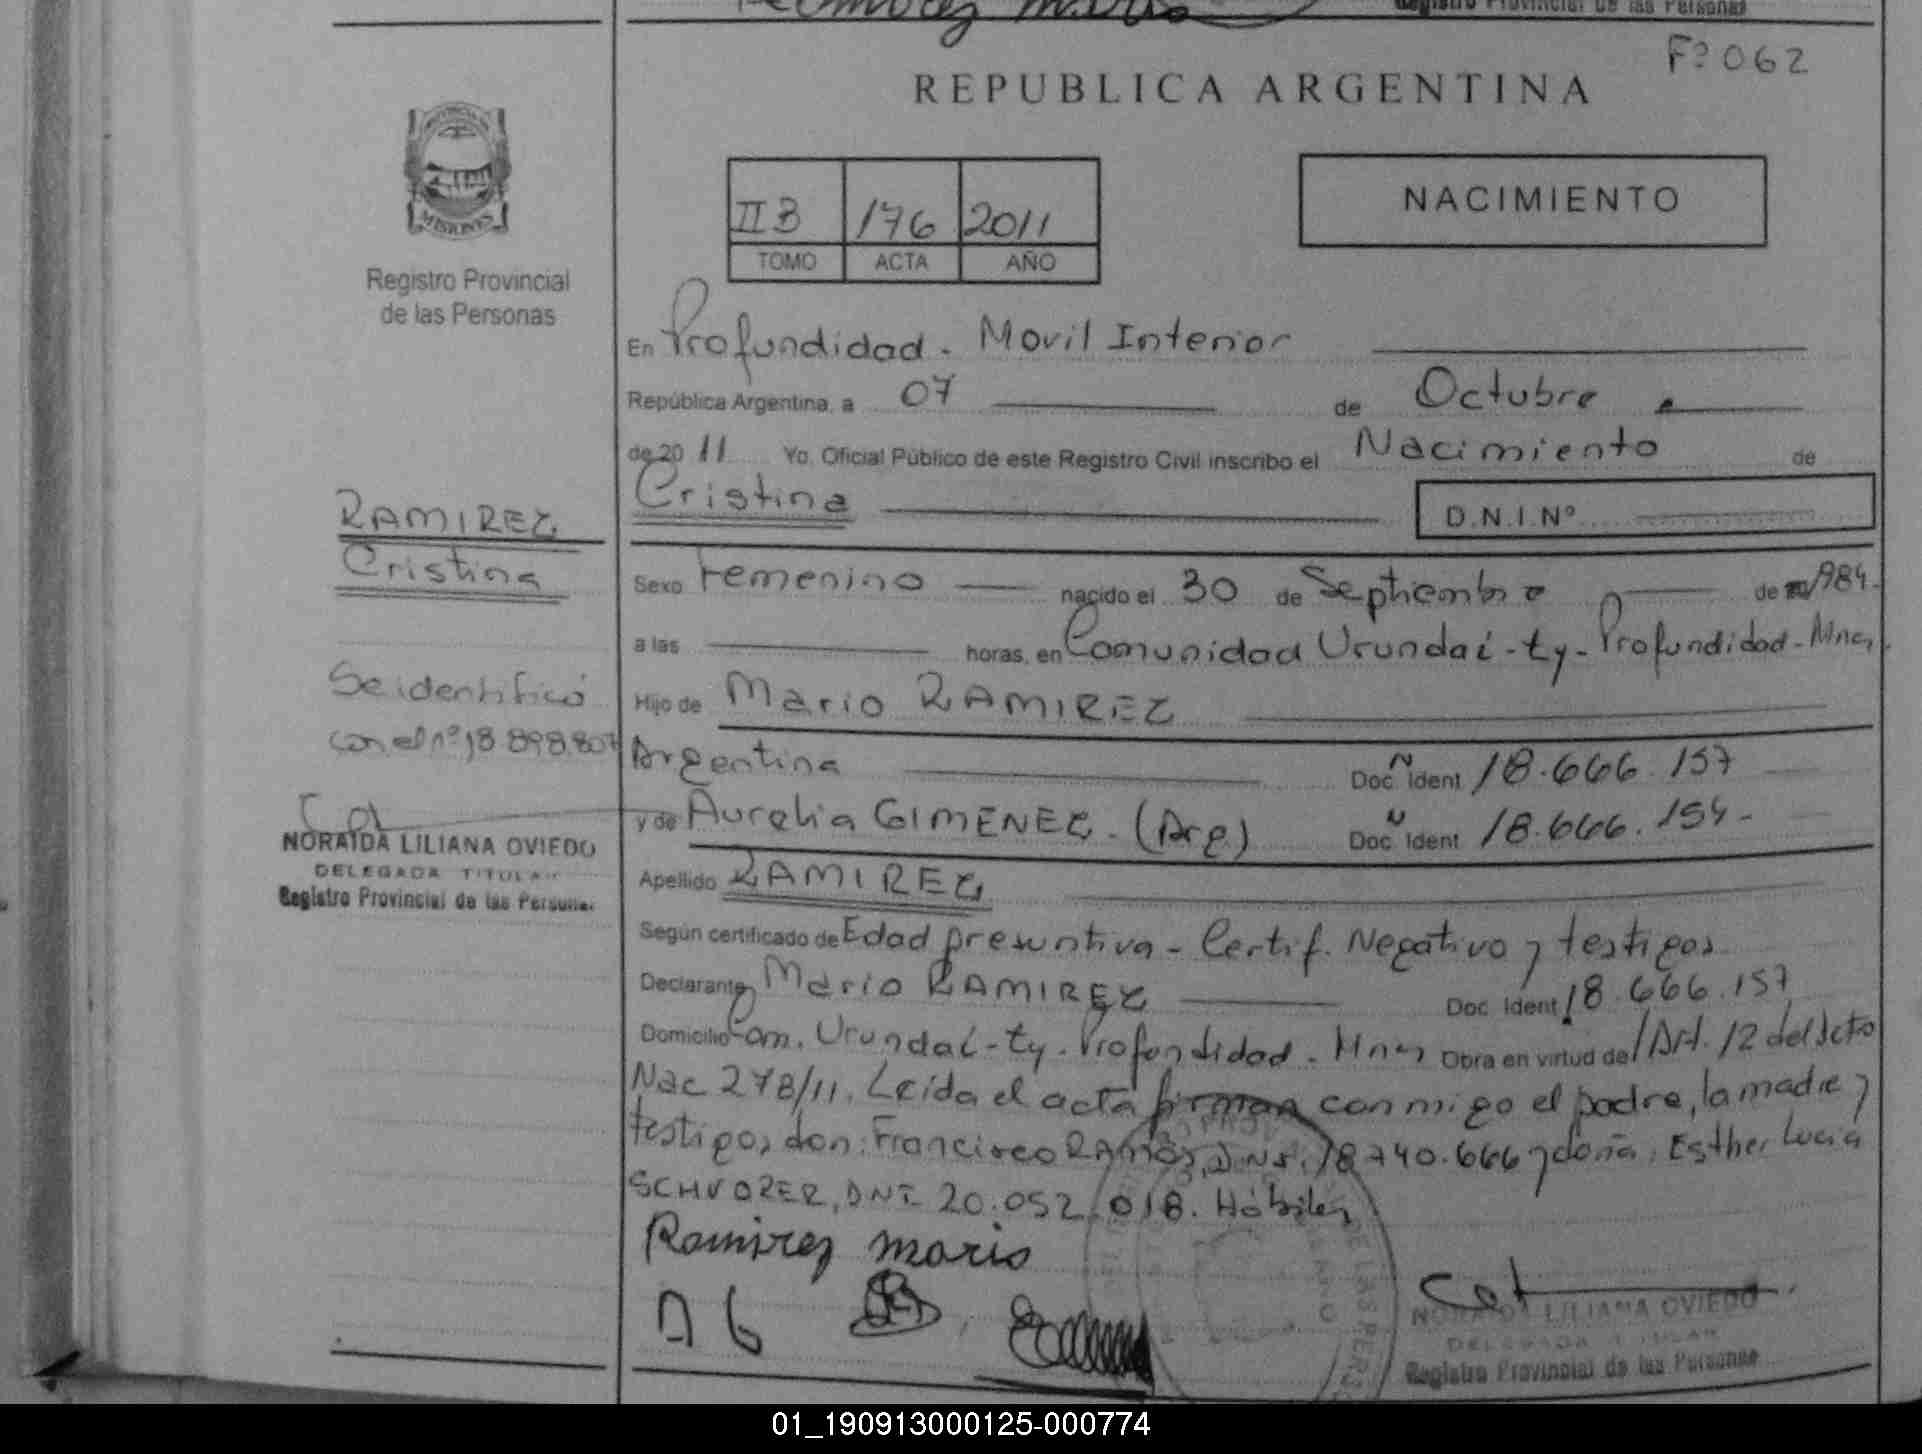 Registro Provincial de las Personas
Fº 062
REPUBLICA ARGENTINA
MISIONES
Registro Provincial
de las Personas
II B 176 2011
TOMO ACTA AÑO
NACIMIENTO
En Profundidad - Movil Interior
República Argentina, a 07 de Octubre
de 2011 Yo, Oficial Público de este Registro Civil inscribo el Nacimiento de
Cristina
D.N.I.Nº
RAMIREZ
Cristina
Se identificó
con el nº 18.898.807
NORAIDA LILIANA OVIEDO
DELEGADA TITULAR
Registro Provincial de las Personas
Sexo Femenino nacido el 30 de Septiembre de 1984-
a las horas, en Comunidad Urundaí-ty-Profundidad-Mnes.
Hijo de Mario RAMIREZ
Argentina Doc. Ident Nº 18.666.157
y de Aurelia GIMENEZ - (Arg) Doc. Ident Nº 18.666.154-
Apellido RAMIREZ
Según certificado de Edad presuntiva - Certif. Negativo y testigos
Declarante Mario RAMIREZ Doc. Ident 18.666.157
Domicilio Com. Urundaí-ty-Profundidad-Mnes Obra en virtud de Art. 12 del Dcto
Nac 278/11. Leída el acta firman conmigo el padre, la madre y
testigos don: Francisco RAMOS, D.N.I. 18.740.666 y doña: Esther Lucia
SCHVORER, DNI 20.052.018. Hábiles
Ramirez mario
A G
NORAIDA LILIANA OVIEDO
DELEGADA TITULAR
Registro Provincial de las Personas
01_190913000125-000774